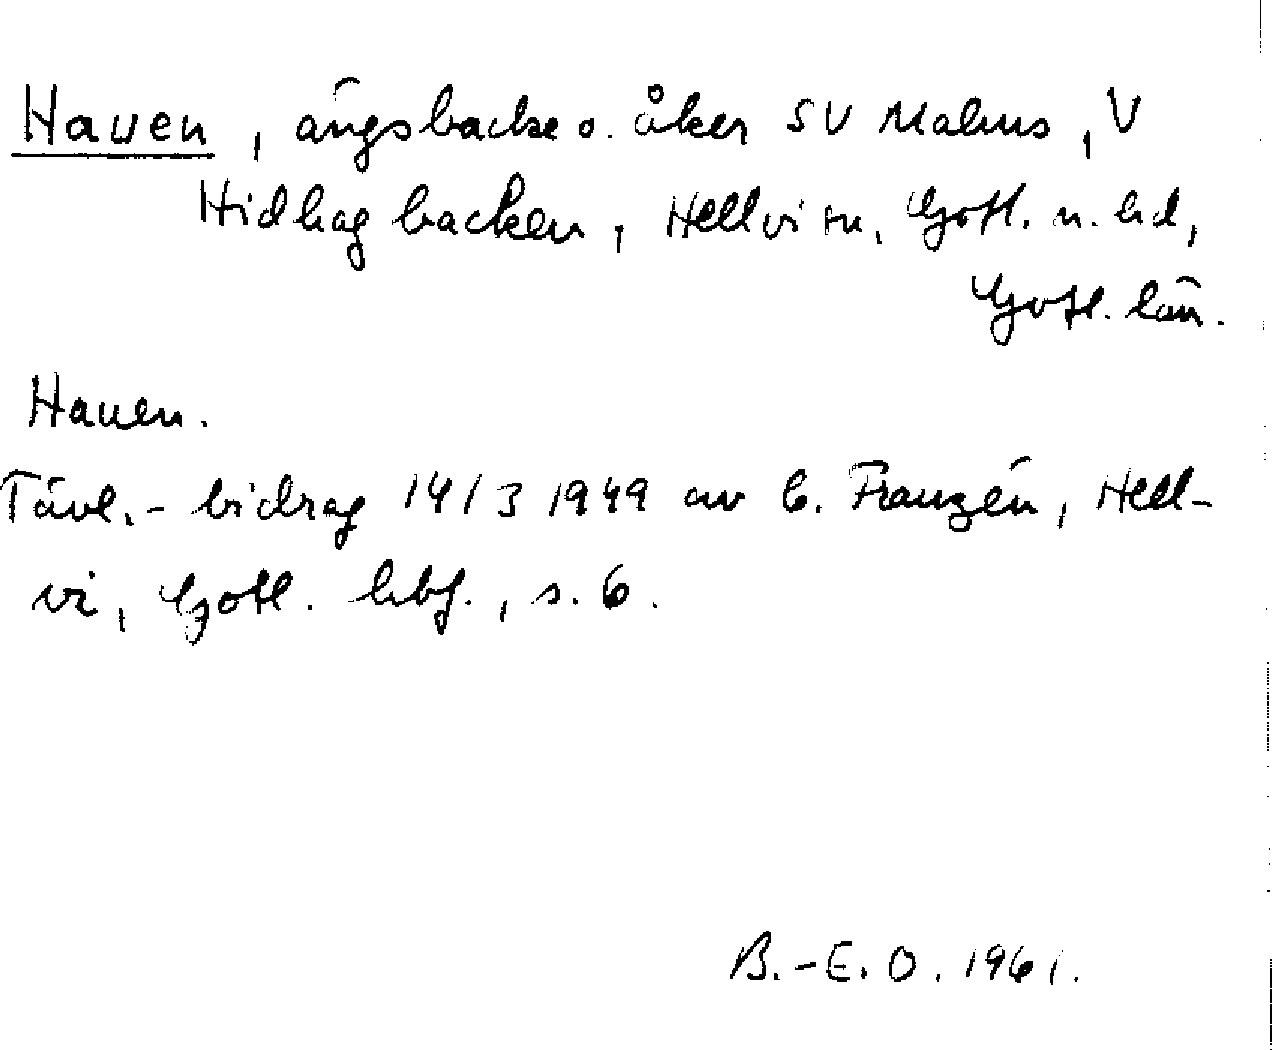 Hauen, ängsbacke o. åker SV Malms, V
Hidhagbacken, Hellvi sn, Gotl. n. hd,
Gotl. län.
Hauen.
Tävl.-bidrag 14/3 1949 av G. Franzén, Hell-
vi, Gotl. hbf., s. 6.
B.-E. O. 1961.